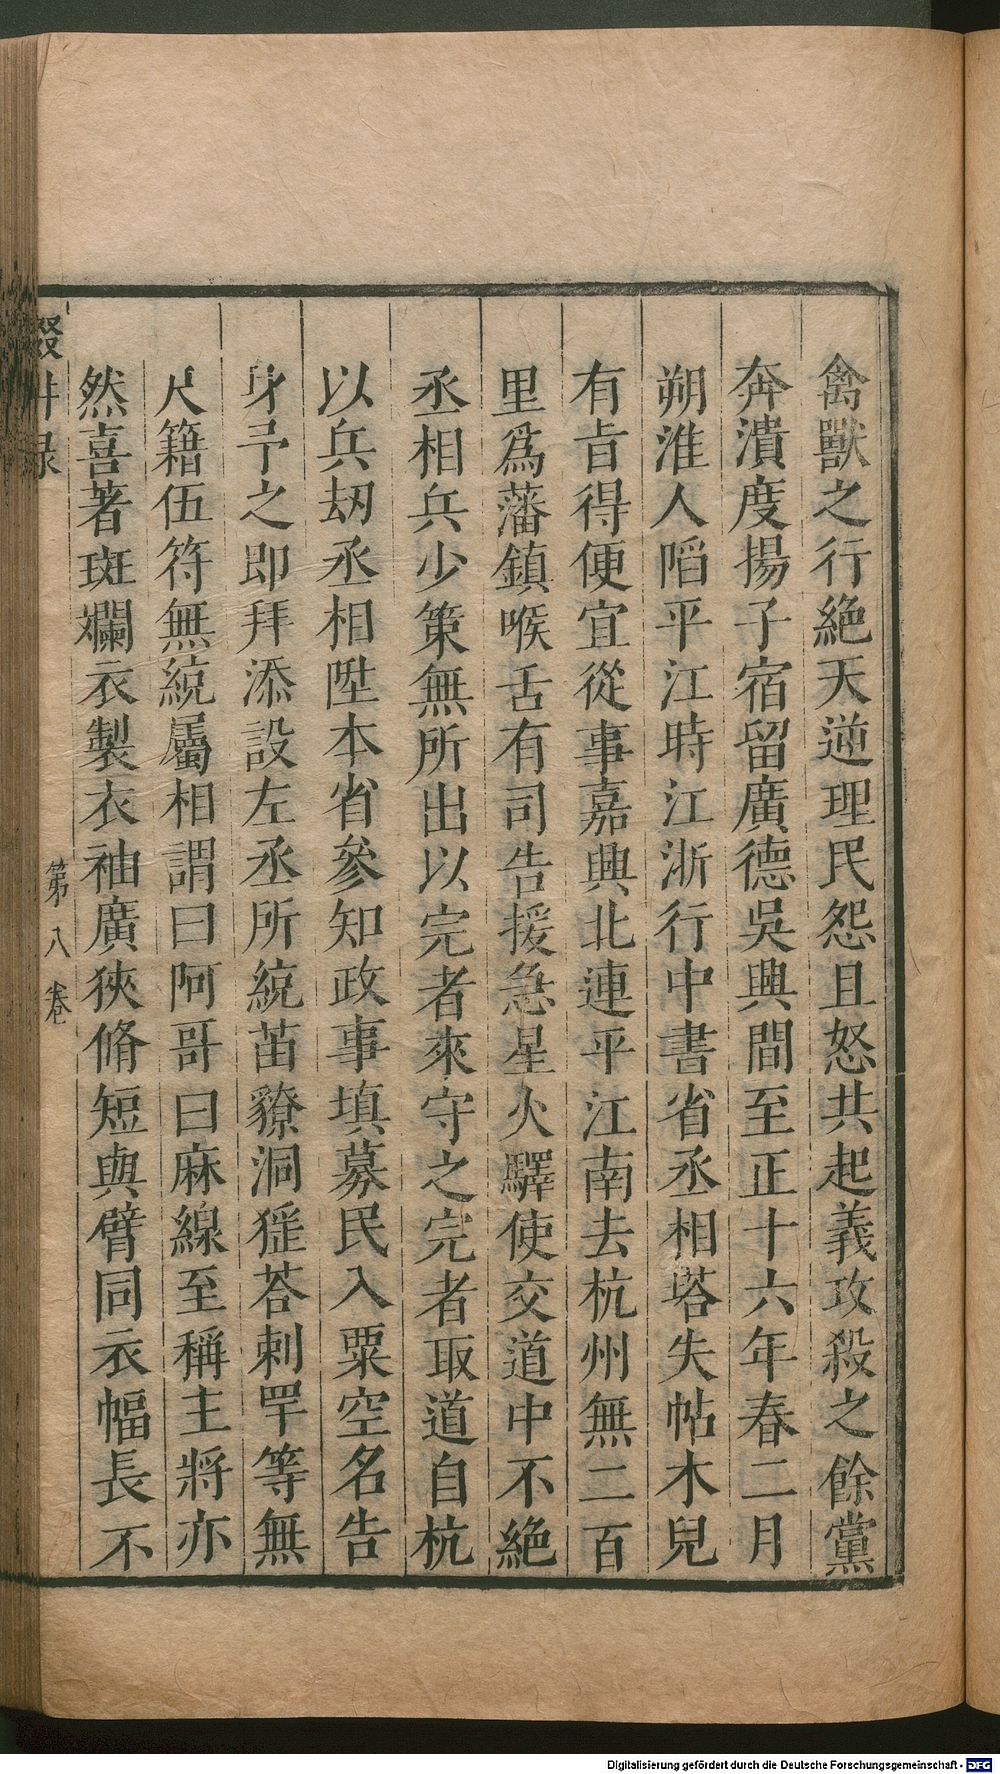 禽獸之行絶天逆理民怨且怒共起義攻殺之餘黨
奔潰度揚子宿留廣德吳興間至正十六年春二月
朔淮人䧟平江時江浙行中書省丞相塔失帖木兒
有旨得便宜從事嘉興北連平江南去杭州無二百
里爲藩鎮喉舌有司告援急星火驛使交道中不絶
丞相兵少策無所出以完者來守之完者取道自杭
以兵刼丞相陞本省參知政事填募民入粟空名告
身予之即拜添設左丞所統苗獠洞猺荅剌罕等無
尺籍伍符無統屬相謂曰阿哥曰麻線至稱主將亦
然喜著斑斕衣製衣袖廣狹脩短與臂同衣幅長不
輟畊录
第八卷
Digitalisierung gefördert durch die Deutsche Forschungsgemeinschaft - DFG